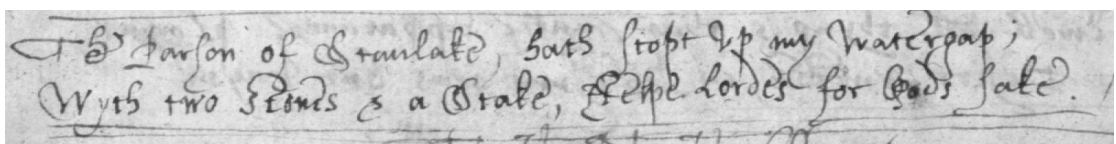 The Parson of Stanlake, hath stopt vp my watergap;
Wyth two stones & a Stake, Helpe Lordes for Gods sake.